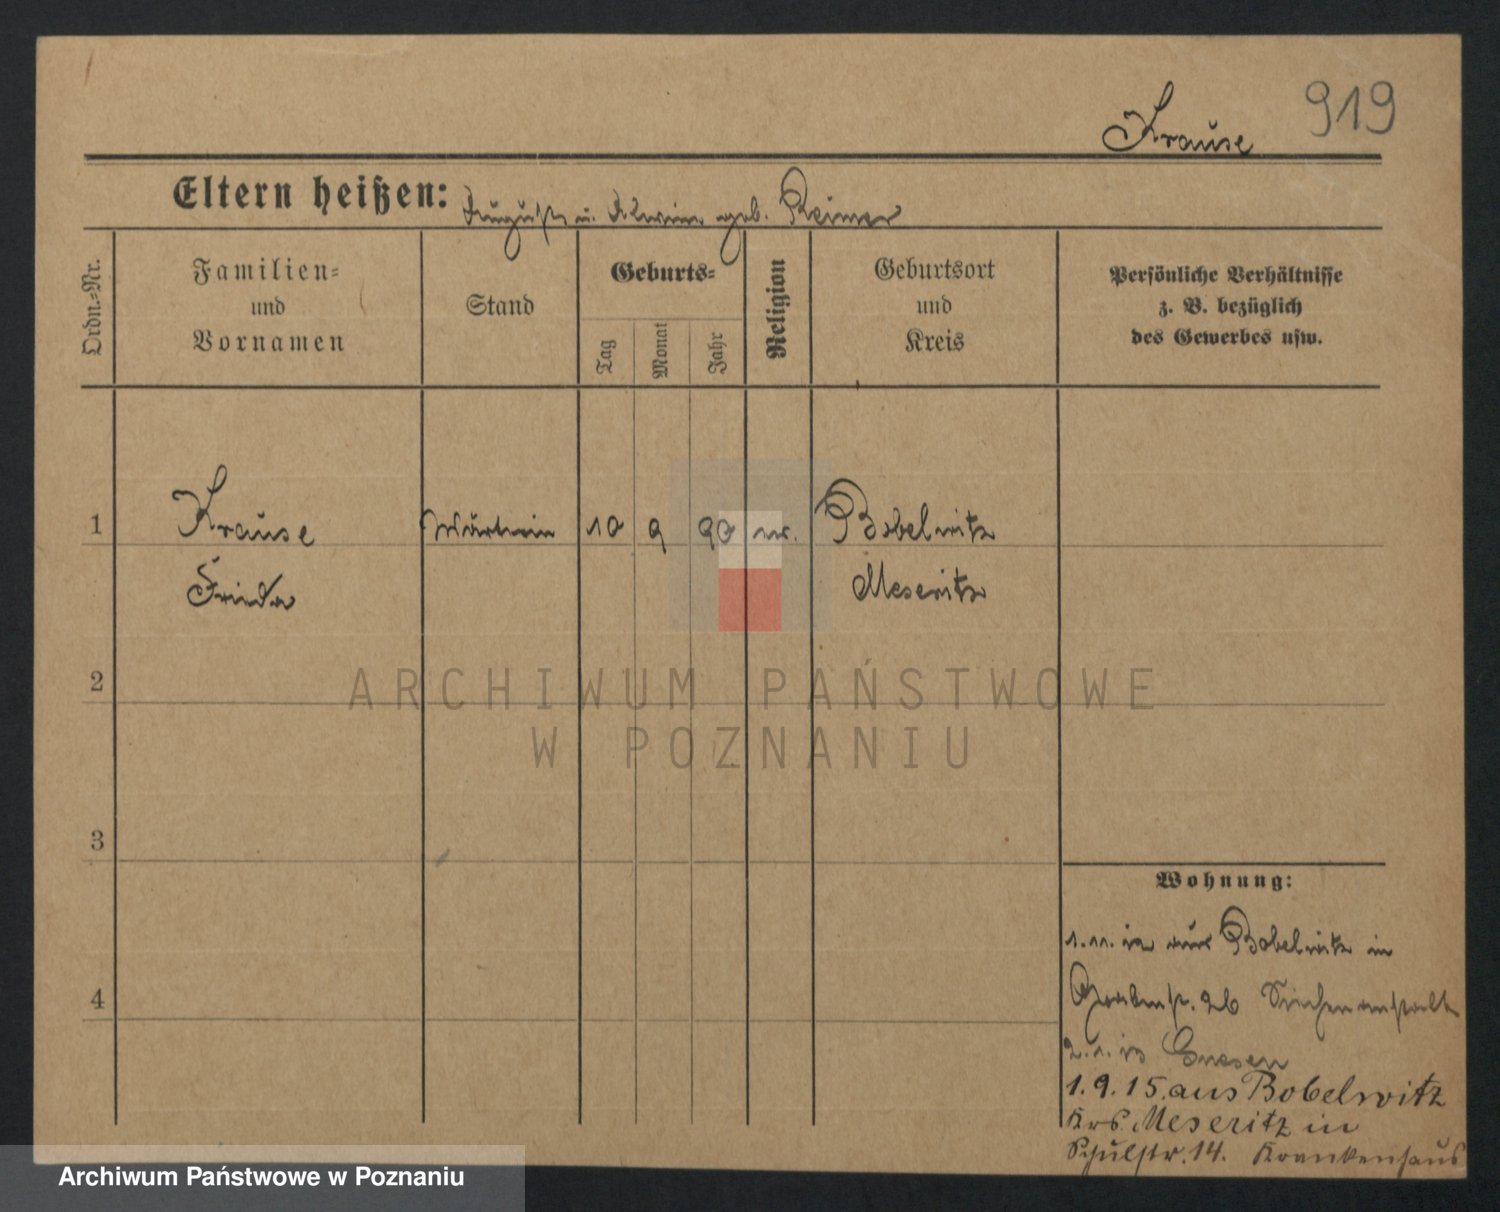 919
Krause
Eltern heißen: August u. Alwine geb. Reimer
Ordn.-Nr.
Familien- und Vornamen
Stand
Geburts-
Tag
Monat
Jahr
Religion
Geburtsort und Kreis
Persönliche Verhältnisse z. B. bezüglich des Gewerbes usw.
1 Krause Wärterin 10 9 90 Bobelwitz
Frieda Meseritz
2
3
4
Wohnung:
1.11. aus Bobelwitz in
Gartenstr. 26 Siechenanstalt
2.1. Gnesen
1.9.15. aus Bobelwitz
Krs. Meseritz in
Schulstr. 14. Krankenhaus
ARCHIWUM PAŃSTWOWE
W POZNANIU
Archiwum Państwowe w Poznaniu